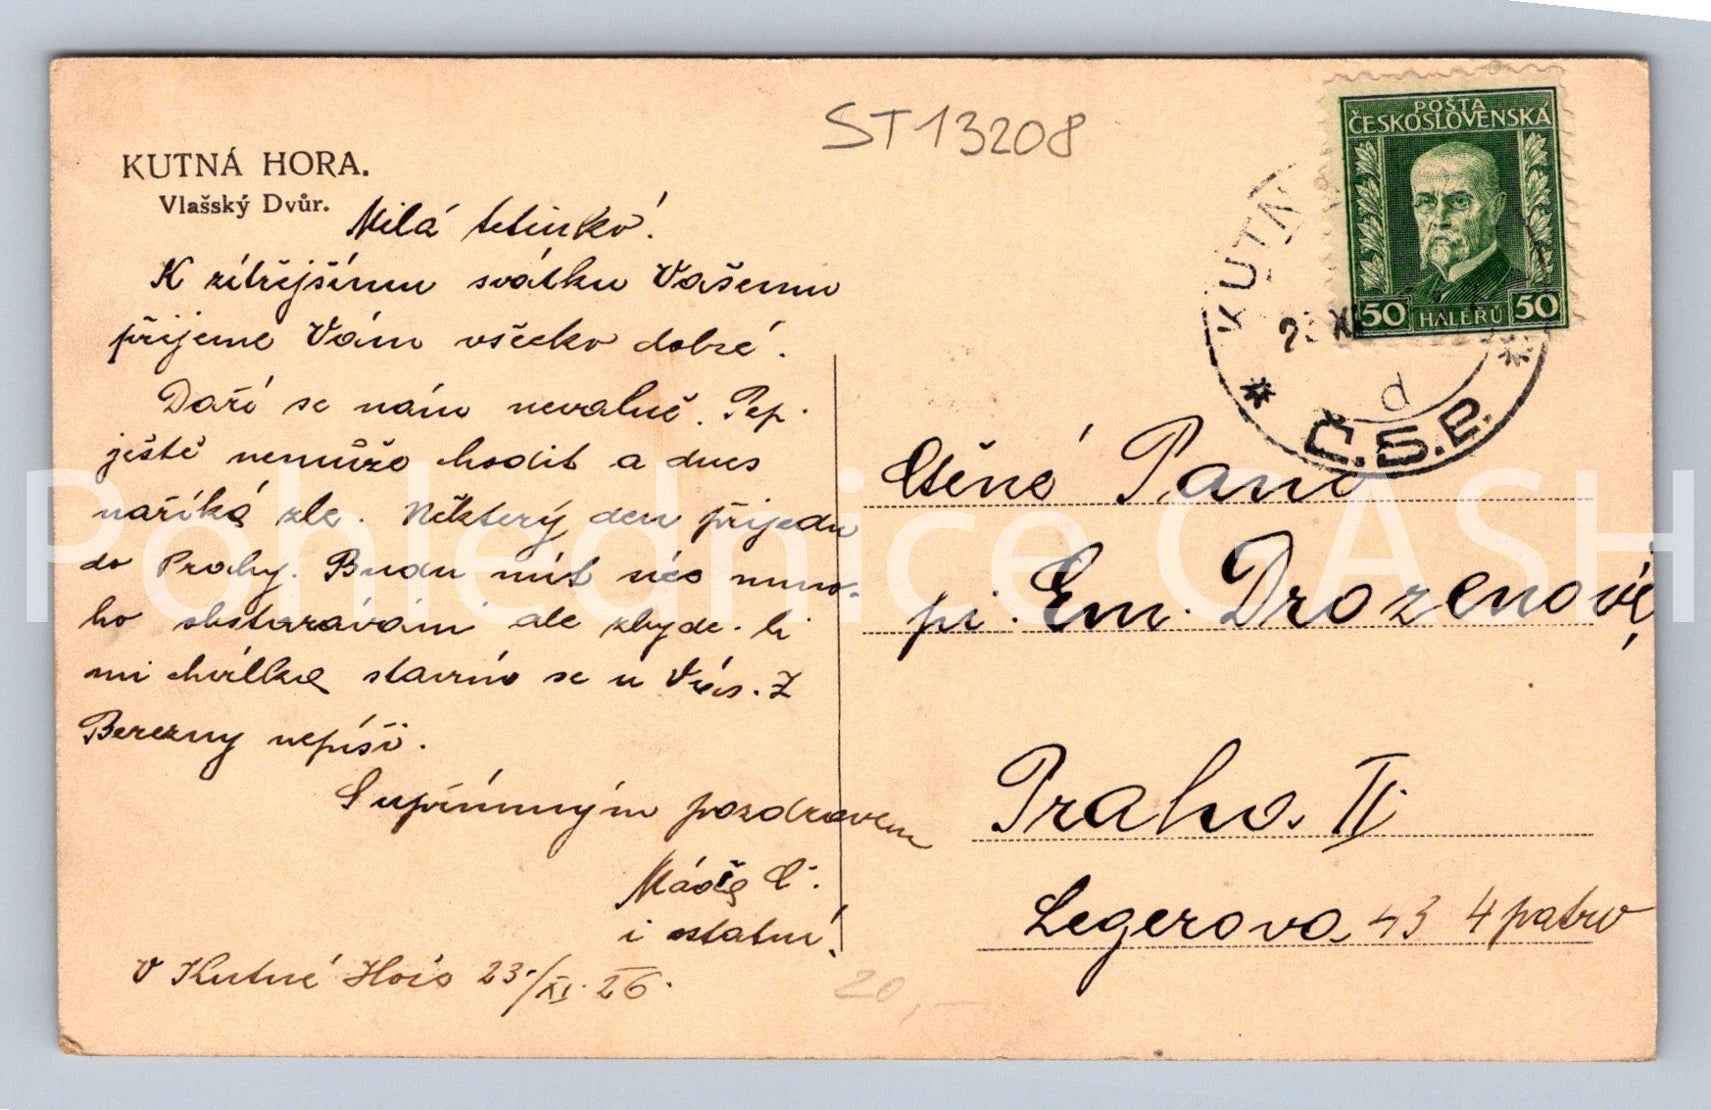 ST13208
KUTNÁ HORA.
Vlašský Dvůr.
Milá tetinko!
K zítřejšímu svátku Vašemu
přijeme Vám všecko dobré.
Daří se nám nevalně. Pep.
ještě nemůže chodit a dnes
naříká zle. Některý den přijedu
do Prahy. Budu mít něco mno-
ho obstarávání ale zbyde-li
mi chvilka stavím se u Vás. Z
Berezny nepíší.
S upřímným pozdravem
Máňa Č.
i ostatní.
V Kutné Hoře 23/XI. 26.
POŠTA
ČESKOSLOVENSKÁ
50 HALÉŘŮ 50
KUTN
XI
d
Č.S.P.
Ctěné Paní
pí. Em. Drozenové,
Praha II
Legerova 43 4 patro
20,—
Pohlednice CASH